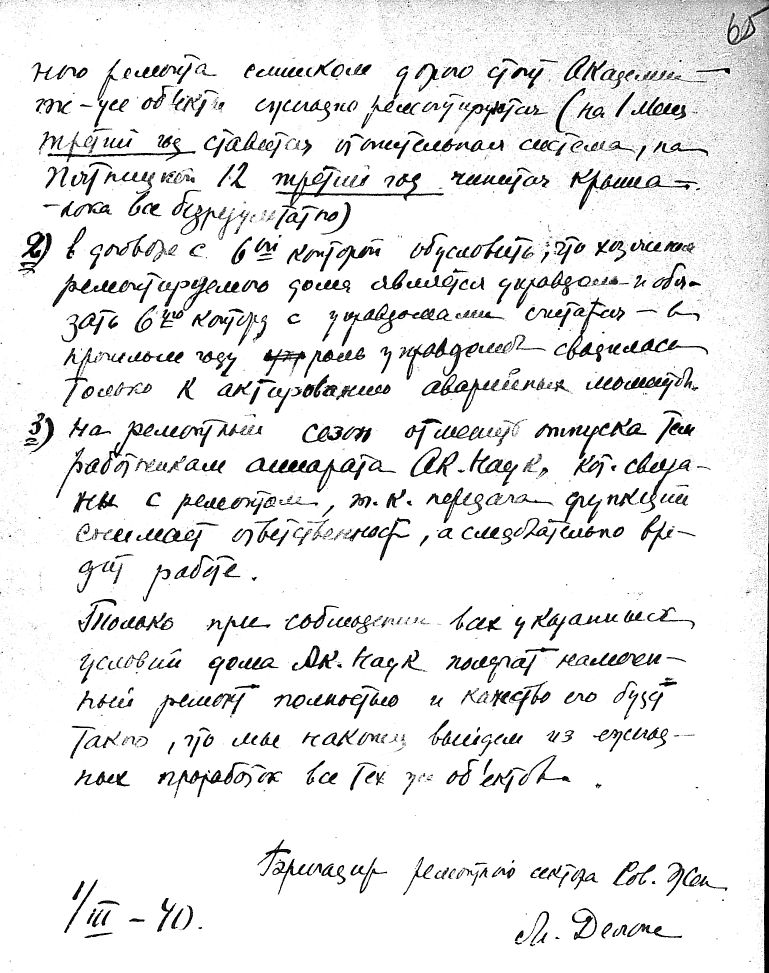 65
ного ремонта слишком дорого стоит Академии —
те же объекты ежегодно ремонтируются (на 1 Мещ.
третий год ставится отопительная система, на
Пятницкой 12 третий год чинится крыша —
— пока все безрезультатно)
2) в договоре с 6ой конторой обусловить, что хозяином
ремонтируемого дома является управдом — и обя-
зать 6ую контору с управдомами считаться — в
прошлом году роль управдомов сводилась
только к актированию аварийных моментов.
3) на ремонтный сезон отменить отпуска тем
работникам аппарата Ак. Наук, кот. связа-
ны с ремонтом, т.к. передача функций
снимает ответственность, а следовательно вре-
дит работе.
Только при соблюдении всех указанных
условий дома Ак. Наук получат намечен-
ный ремонт полностью и качество его будет
такого, что мы наконец выйдем из ежегод-
ных проработок все тех же об'ектов.
Бригадир ремонтного сектора Сов. Жен
1/III — 40.
М. Делоне